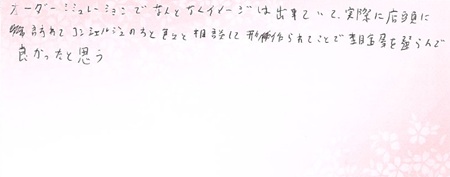 オーダーシュミレーションでなんとなくイメージは出来ていて、実際に店頭に
訪れて コンシェルジュの方と色々と相談して 形作られたことで 杢目金屋を選らんで
良かったと思う